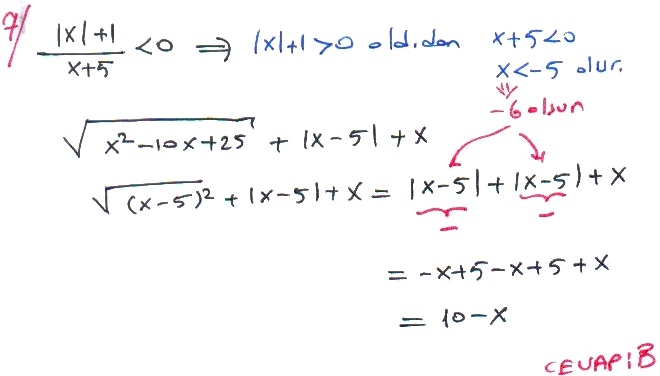 7/ (|x|+1)/(x+5) < 0 ⇒ |x|+1>0 old.dan x+5<0
x<-5 olur.
-6 olsun
√(x²-10x+25) + |x-5| + x
√((x-5)²) + |x-5| + x = |x-5| + |x-5| + x
- -
= -x+5-x+5+x
= 10-x
CEVAP: B